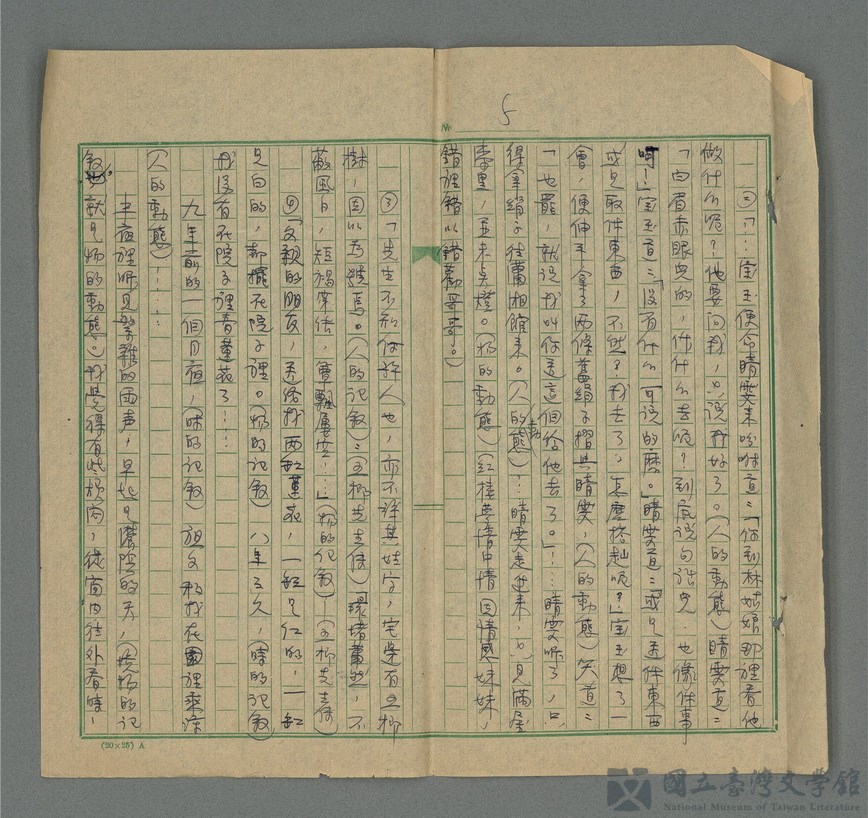 5
㊁「……宝玉便命晴雯来吩咐道：「你到林姑娘那裡看他
做什么呢？他要问我，只说我好了。（人的動態）晴雯道：
「白眉赤眼兒的，作什么去呢？到底说句话兒，也像件事
啊！」宝玉道：「没有什么可说的麽。」晴雯道：「或是送件東西
或是取件東西，不然？我去了，怎麽搭赸呢？」宝玉想了一
會，便伸手拿了两條舊絹子摺與晴雯，（人的動態）笑道：
「也罷，就说我叫你送這個给他去了。」……晴雯听了，只
得拿絹子往蕭湘館来。（人的動態）……晴雯走進来！只見滿屋
漆黑，並未点燈。（物的動態）（红樓夢情中情因情感妹妹，
錯裡錯以錯勸哥哥。）
③「先生不知何許人也，亦不詳其姓字，宅邊有五柳
樹，因以為號焉。（人的記敘）：（五柳先生傳）環堵蕭然，不
蔽風日，短褐穿結，簞瓢屢空……」（物的记敘）—（五柳先生傳）
④「父親的朋友，送给我两缸蓮花，一缸是红的，一缸
是白的，都擺在院子裡。（物的记敘）八年之久，（時的记敘）
我没有在院子裡看蓮花了……
九年前的一個月夜，（時的记敘）祖父和我在園裡乘涼
（人的動態），……
半夜裡听見繁雜的雨声，早起是濃陰的天，（
敘，就是物的動態。）我覺得有些烦闷，從窗内往外看時，
(20×25) A
國立臺灣文學館
National Museum of Taiwan Literature